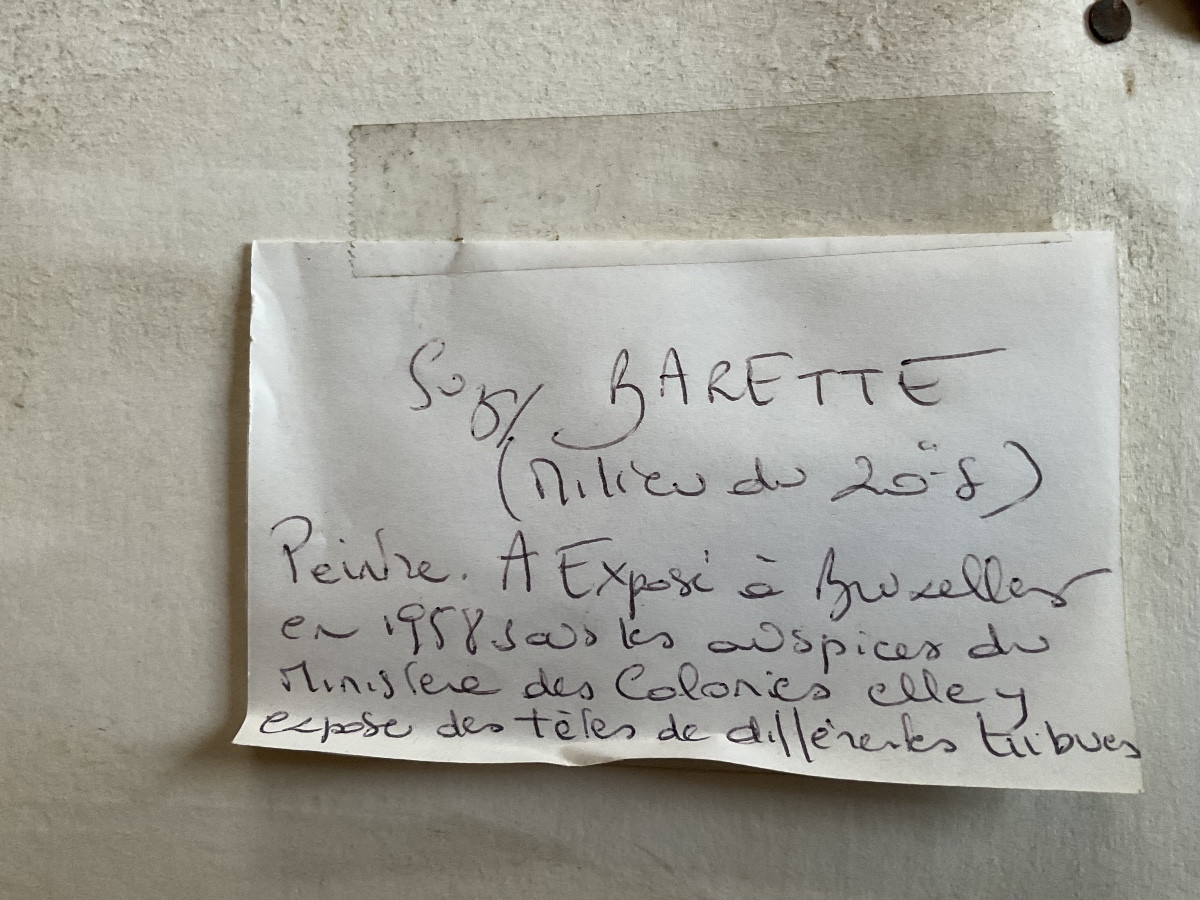 Suzy BARETTE
(Milieu du 20è S)
Peintre. A Exposé à Bruxelles
en 1958 sous les auspices du
Ministère des Colonies elle y
expose des têtes de différentes tribues